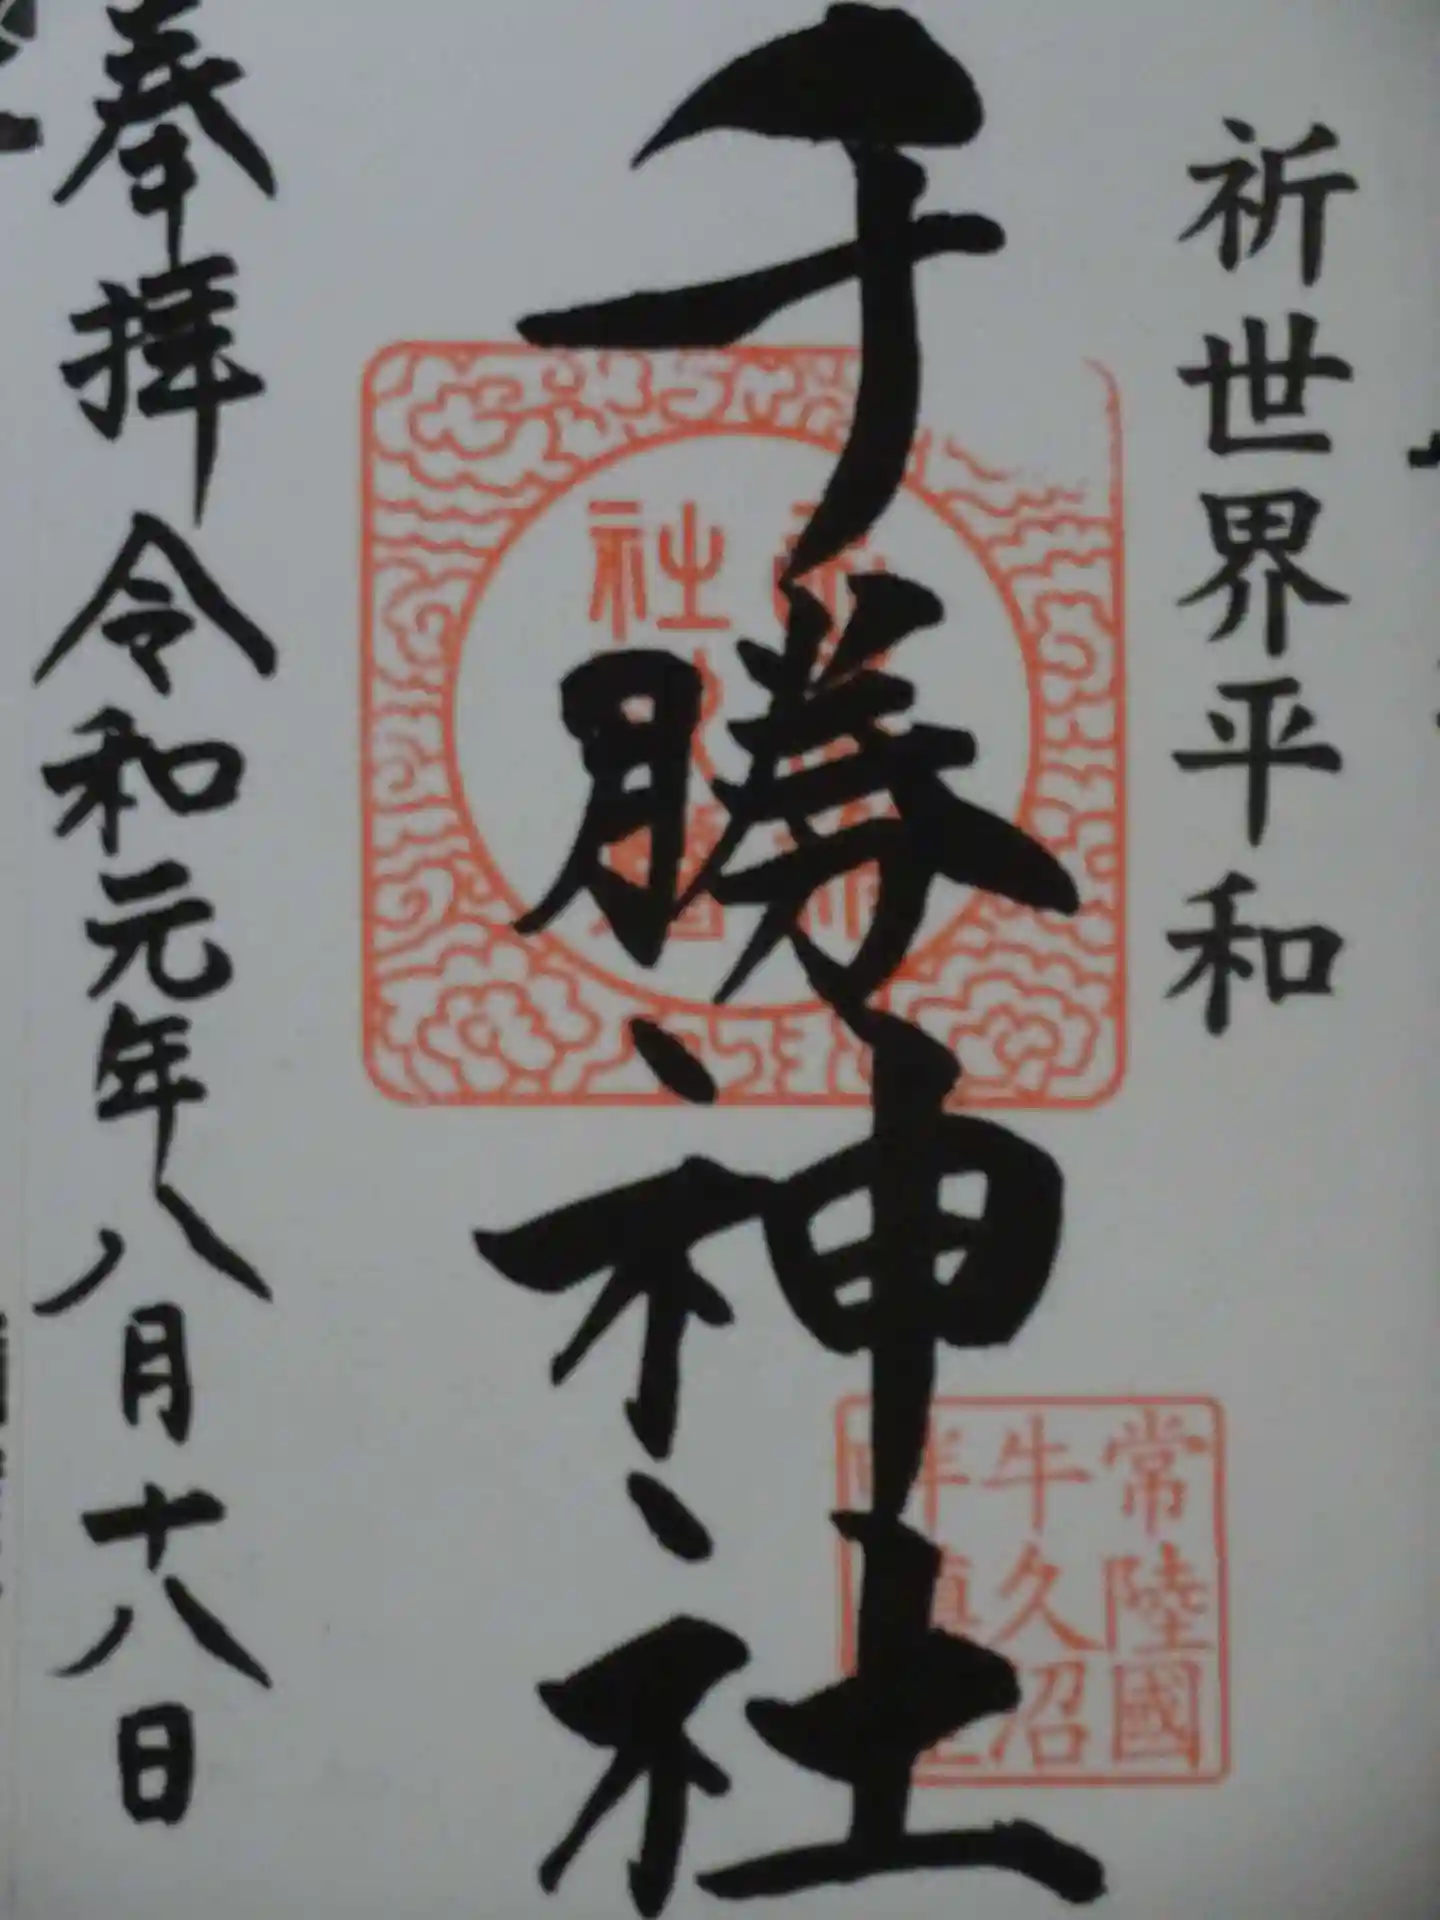 祈世界平和
千勝神社
常陸國
牛久沼
奉拝 令和元年八月十八日